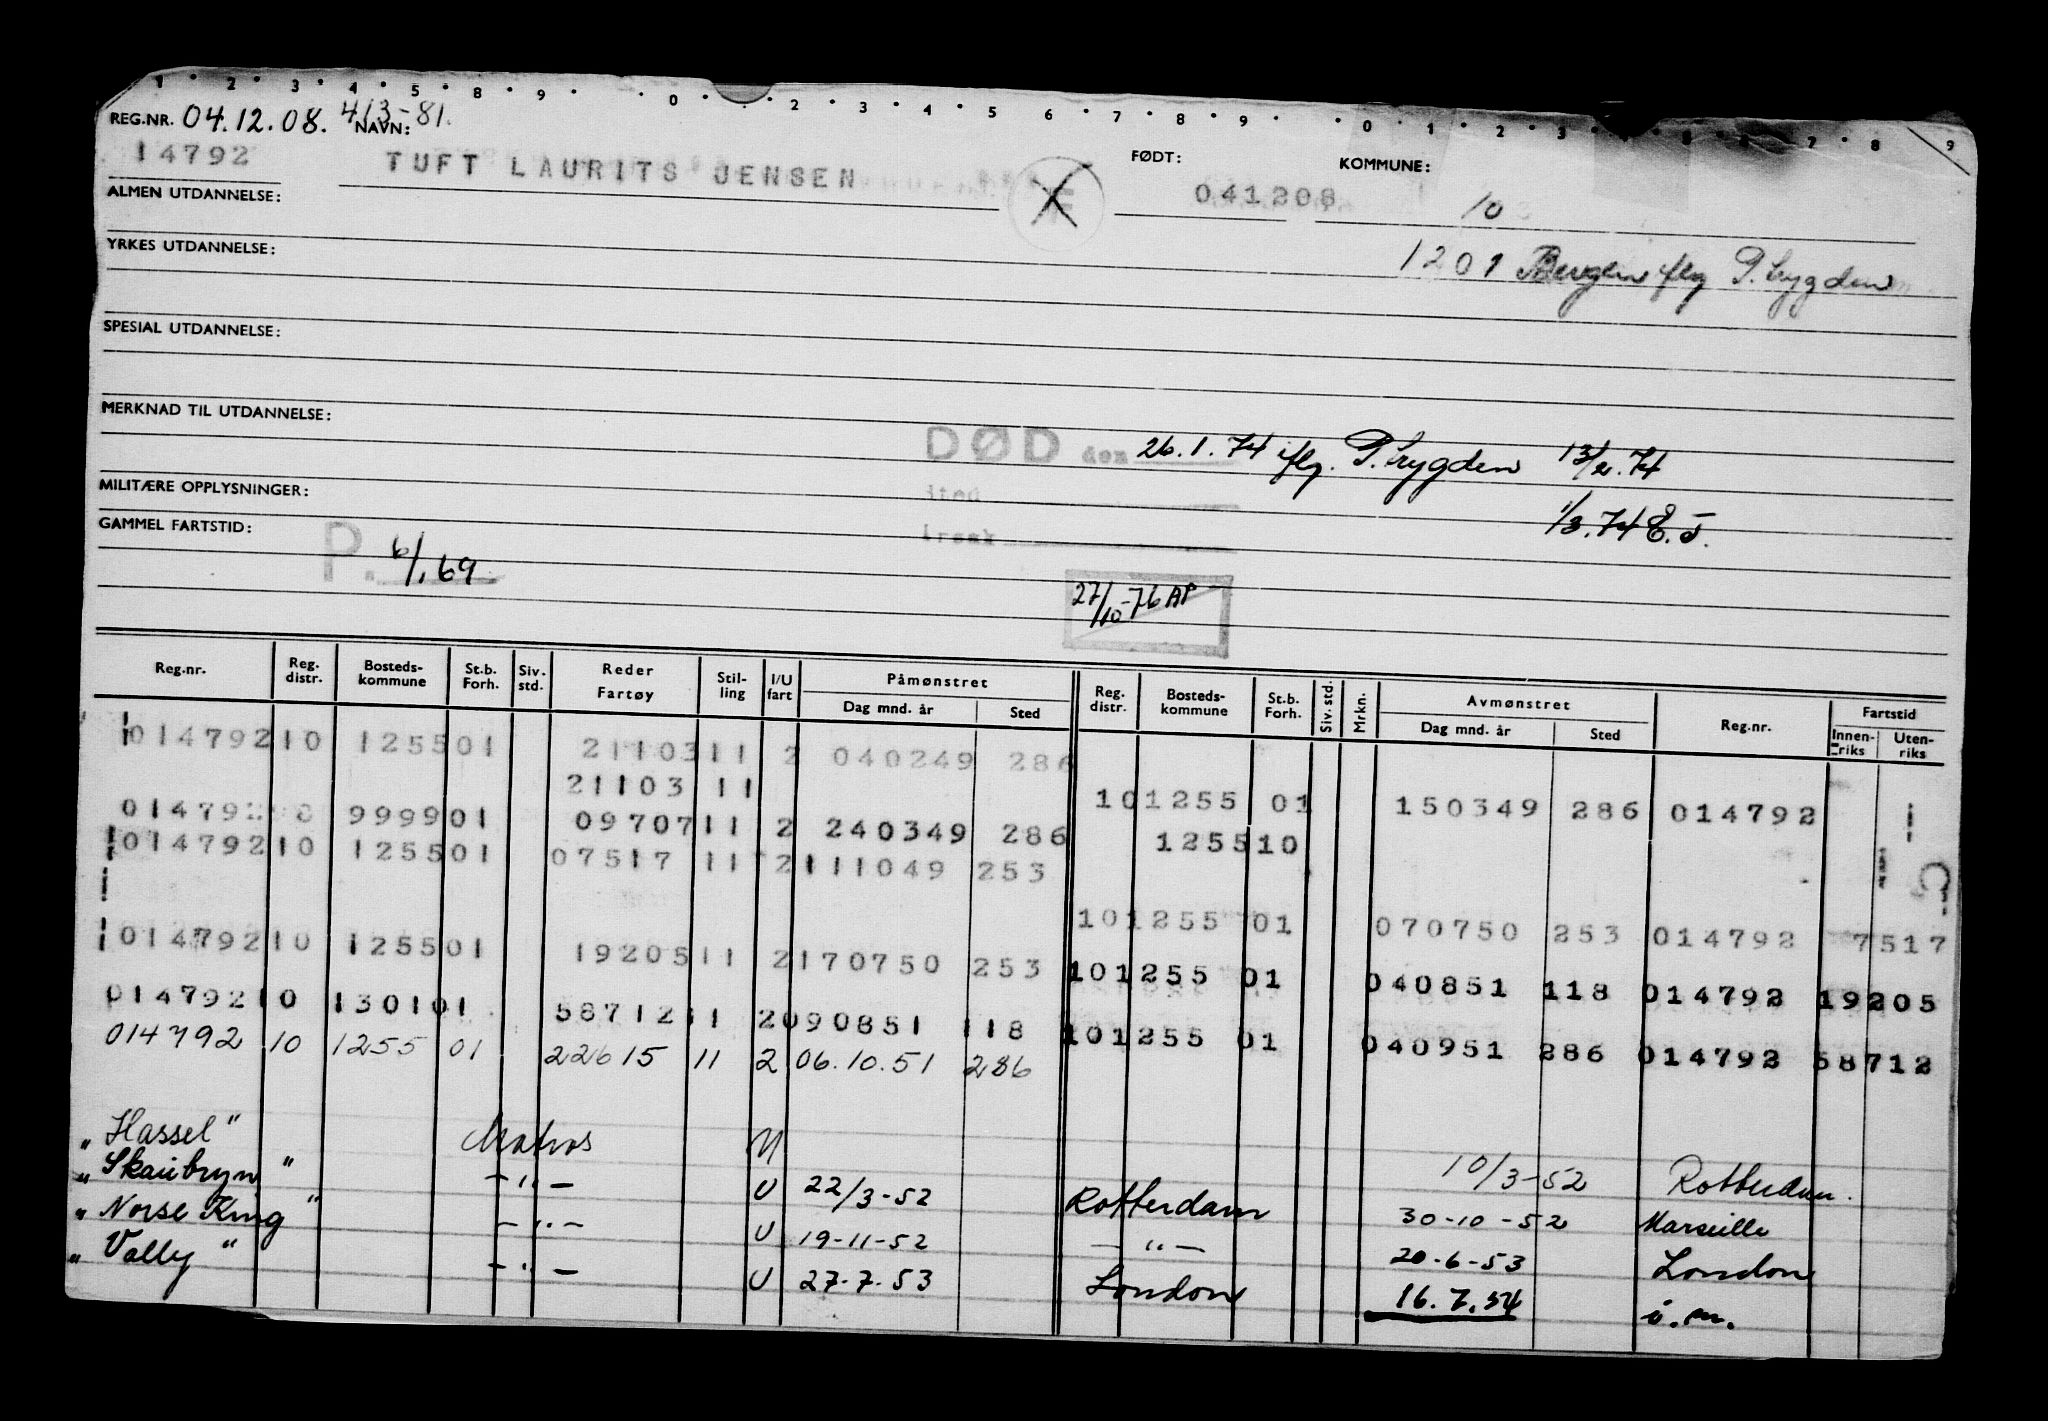 1 2 3 4 5 8 9 0 2 3 4 5 6 7 8 9 0 1 2 3 7 8 9
REG.NR. 04.12.08. 413-81.
NAVN:
14792 TUFT LAURITS JENSEN
FØDT: 041208
KOMMUNE: 10
ALMEN UTDANNELSE:
1201 Bergen iflg P.bygden
YRKES UTDANNELSE:
SPESIAL UTDANNELSE:
MERKNAD TIL UTDANNELSE:
DØD den 26.1.74 iflg. P.bygden 13/2.74
MILITÆRE OPPLYSNINGER:
1/3.74 E.J.
GAMMEL FARTSTID:
P. 6/1.69
27/10-76 AP
Reg.nr. Reg. distr. Bosteds-kommune St.b. Forh. Siv. std. Reder Fartøy Stil-ling I/U fart Påmønstret Dag mnd. år Sted Reg. distr. Bosteds-kommune St.b. Forh. Siv. std. Mrkn. Avmønstret Dag mnd. år Sted Reg.nr. Fartstid Innen-riks Uten-riks
014792 10 1255 01 21103 11 2 040249 286
21103 11 10 1255 01 150349 286 014792
014792 0 9999 01 09707 11 2 240349 286 1255 10
014792 10 1255 01 07517 11 2 111049 253
10 1255 01 070750 253 014792 7517
014792 10 1255 01 19205 11 2 170750 253
10 1255 01 040851 118 014792 19205
014792 10 1301 01 58712 11 2 090851 118
10 1255 01 040951 286 014792 58712
014792 10 1255 01 22615 11 2 06.10.51 286
"Hassel" Matros U 10/3-52 Rotterdam.
"Skaubryn" -"- U 22/3-52 Rotterdam 30-10-52 Marseille
"Norse King" -"- U 19-11-52 -"- 20-6-53 London
"Vally" -"- U 27-7.53 London 16.7.54 i.m.